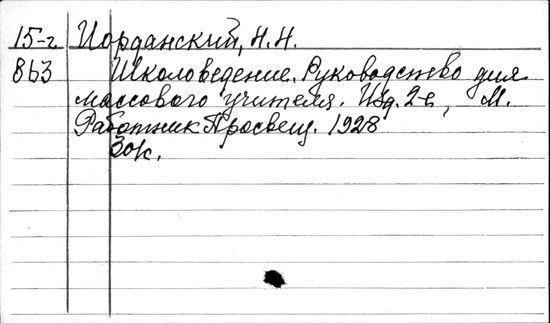 15-г Иорданский, Н.Н.
863 Школоведение. Руководство для
массового учителя. Изд. 2-е, М.
Работник Просвещ. 1928
30к.